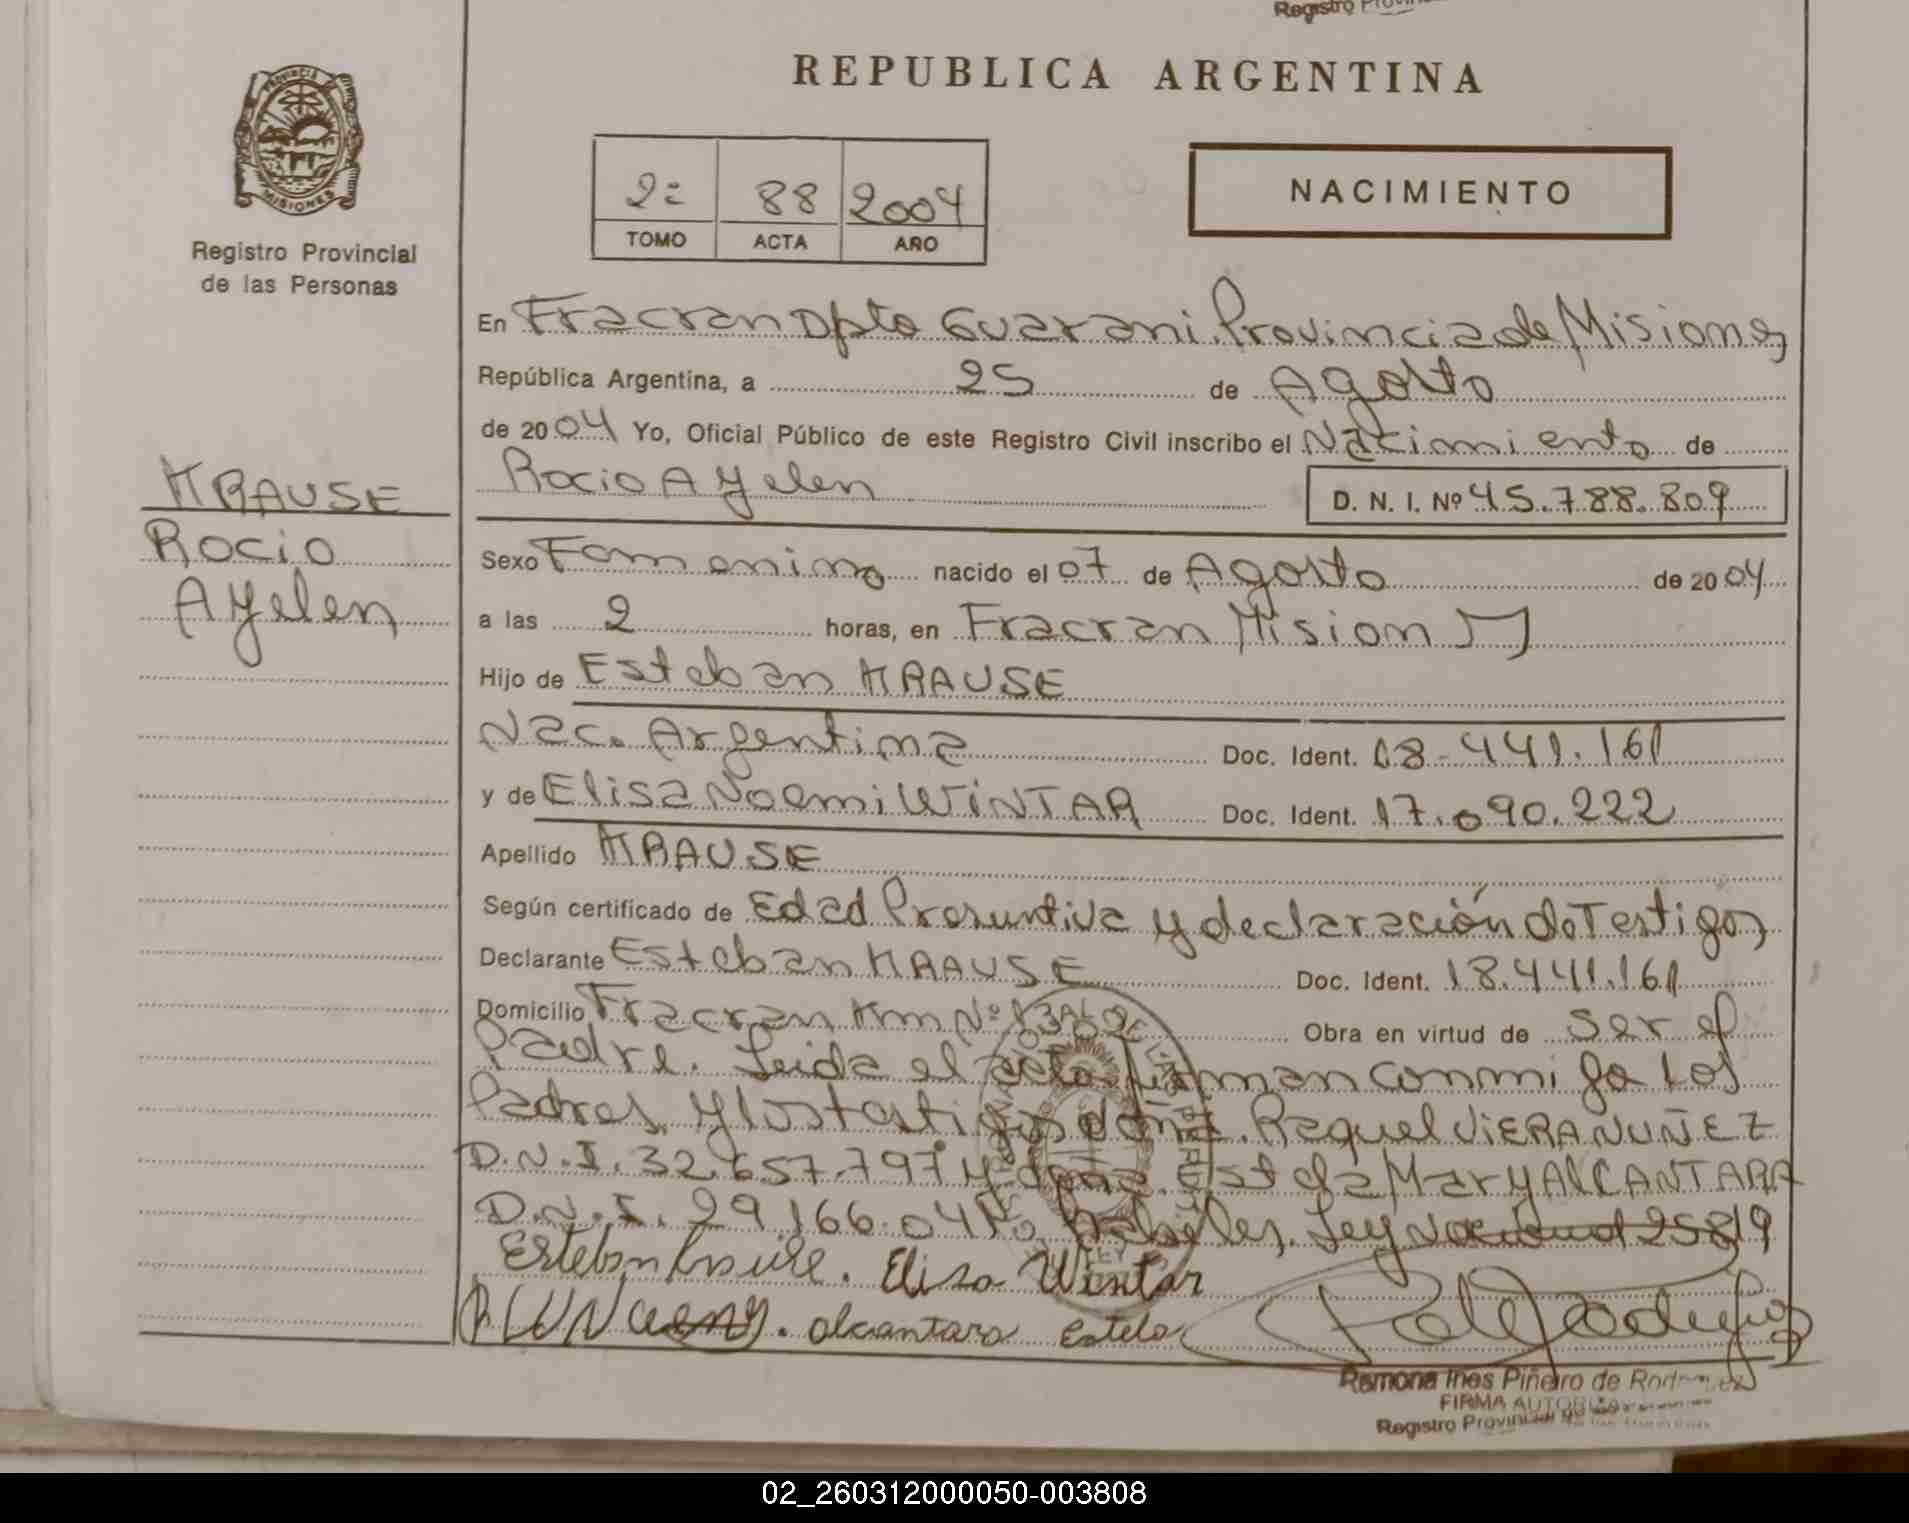 Registro
REPUBLICA ARGENTINA
PROVINCIA
MISIONES
Registro Provincial
de las Personas
2º 88 2004
TOMO ACTA AÑO
NACIMIENTO
KRAUSE
Rocio
Ayelen
En Fracran Dpto Guarani. Provincia de Misiones
República Argentina, a 25 de Agosto
de 2004 Yo, Oficial Público de este Registro Civil inscribo el Nacimiento de
Rocio Ayelen D. N. I. Nº 45.788.809
Sexo Femenino nacido el 07 de Agosto de 2004
a las 2 horas, en Fracran Misiones
Hijo de Esteban KRAUSE
Nac. Argentina Doc. Ident. 18.441.161
y de Elisa Noemi WiNTAR Doc. Ident. 17.090.222
Apellido KRAUSE
Según certificado de Edad Presuntiva y declaración de Testigos
Declarante Esteban KRAUSE Doc. Ident. 18.441.161
Domicilio Fracran Km Nº Obra en virtud de ser el
Padre. Leida el acta firman conmigo los
Padres y los testigos doña. Raquel ViERA NUÑEZ
D.N.I. 32.657.797 y doña. Estela Mary ALCANTARA
D.N.I. 29.166.041 Ley Nacional 25819
Esteban Krause. Elisa Wintar
alcantara Estela
Ramona Ines Piñeiro de Rodriguez
FIRMA AUTORIZADA
Registro Provincial de las Personas
02_260312000050-003808